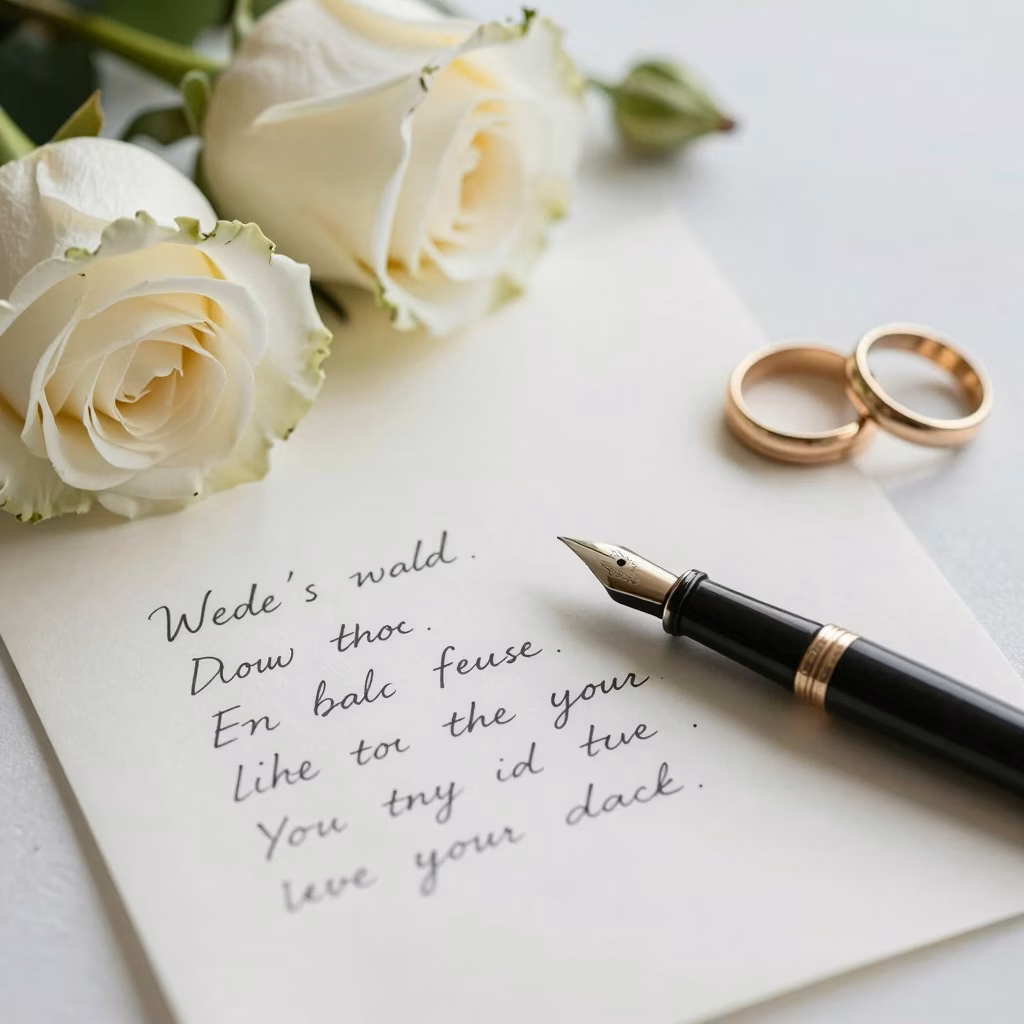 Wede's wald.
Dow thoc.
En balc feuse.
Lihe tor the your.
You tny id tue.
leve your dack.